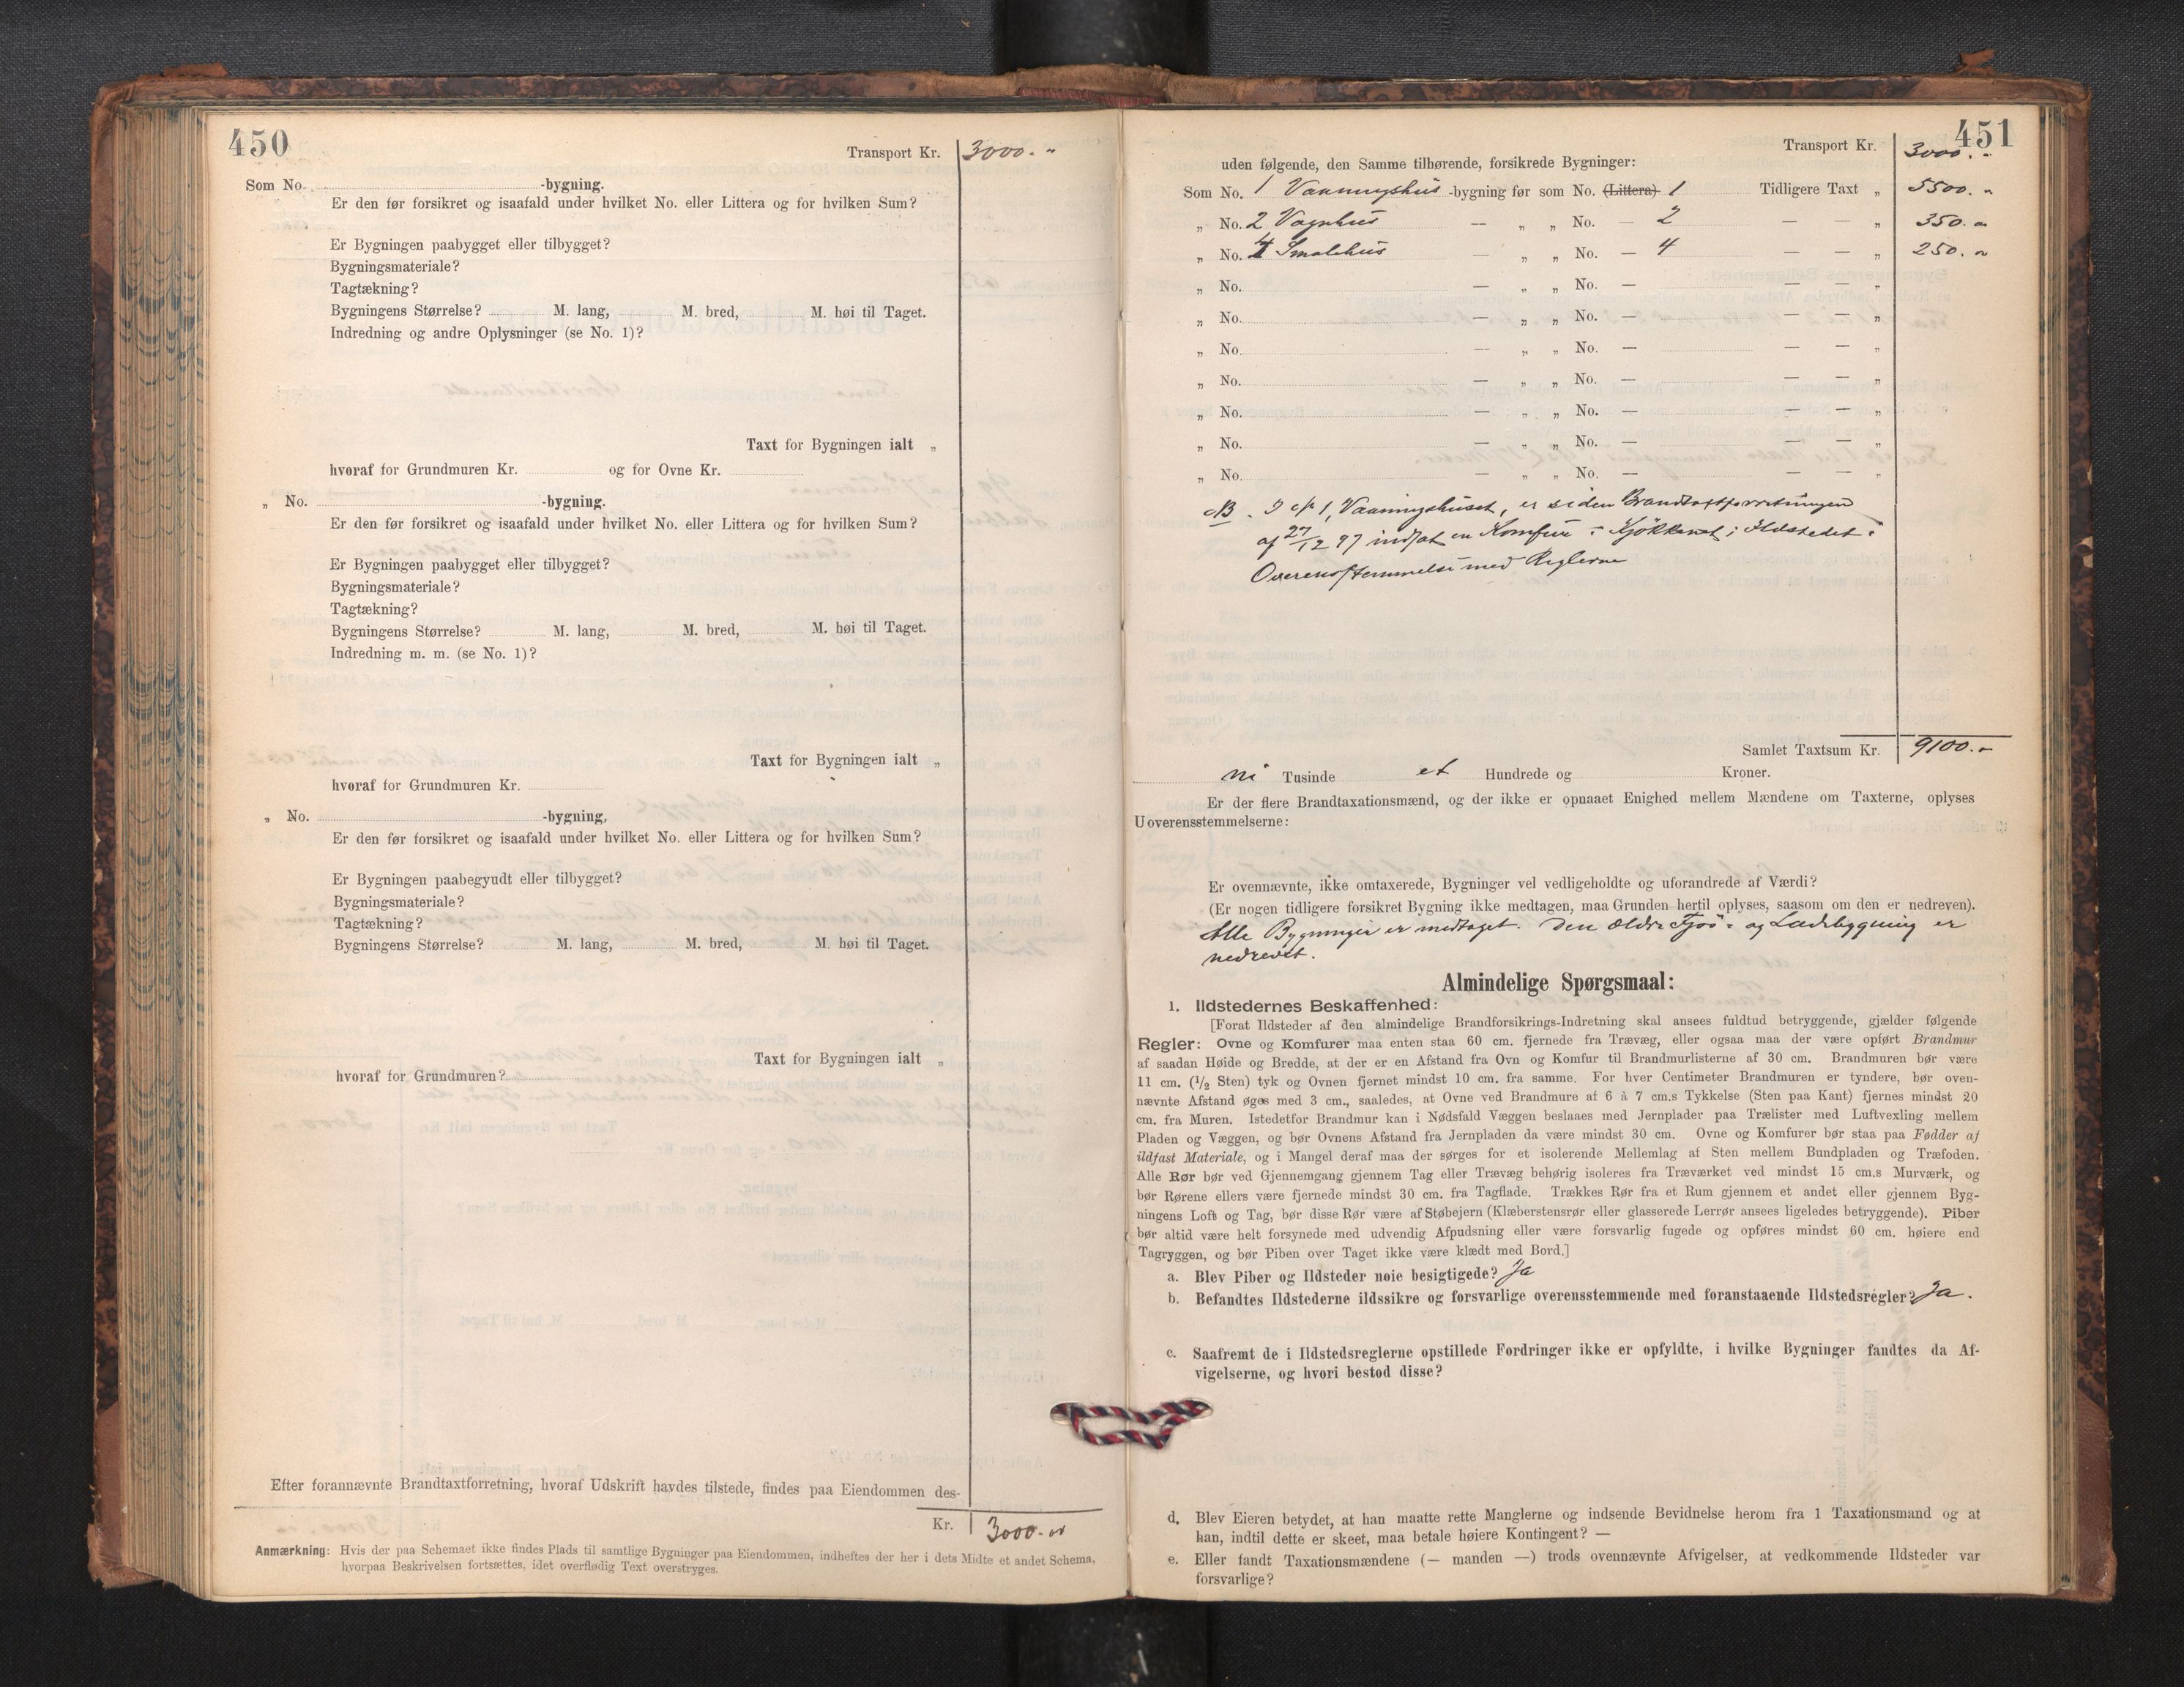 450
Transport Kr. 3000. "
Som No. -bygning.
Er den før forsikret og isaafald under hvilket No. eller Littera og for hvilken Sum?
Er Bygningen paabygget eller tilbygget?
Bygningsmateriale?
Tagtækning?
Bygningens Størrelse? M. lang, M. bred, M. høi til Taget.
Indredning og andre Oplysninger (se No. 1)?
Taxt for Bygningen ialt „
hvoraf for Grundmuren Kr. og for Ovne Kr.
„ No. -bygning.
Er den før forsikret og isaafald under hvilket No. eller Littera og for hvilken Sum?
Er Bygningen paabygget eller tilbygget?
Bygningsmateriale?
Tagtækning?
Bygningens Størrelse? M. lang, M. bred, M. høi til Taget.
Indredning m. m. (se No. 1)?
Taxt for Bygningen ialt „
hvoraf for Grundmuren Kr.
„ No. -bygning,
Er den før forsikret og isaafald under hvilket No. eller Littera og for hvilken Sum?
Er Bygningen paabegyudt eller tilbygget?
Bygningsmateriale?
Tagtækning?
Bygningens Størrelse? M. lang, M. bred, M. høi til Taget.
Taxt for Bygningen ialt „
hvoraf for Grundmuren?
Efter forannævnte Brandtaxtforretning, hvoraf Udskrift havdes tilstede, findes paa Eiendommen des-
Kr. 3000. "
Anmærkning: Hvis der paa Schemaet ikke findes Plads til samtlige Bygninger paa Eiendommen, indheftes der her i dets Midte et andet Schema,
hvorpaa Beskrivelsen fortsættes, idet overflødig Text overstryges.
451
Transport Kr. 3000. "
uden følgende, den Samme tilhørende, forsikrede Bygninger:
Som No. 1 Vaaningshus -bygning før som No. (Littera) 1 Tidligere Taxt „ 5500. "
„ No. 2 Vognhus — „ „ No. — 2 — — „ 350. "
„ No. 4 Smalehus — „ „ No. — 4 — — „ 250. "
„ No. — „ „ No. — — — „
„ No. — „ „ No. — — — „
„ No. — „ „ No. — — — „
„ No. — „ „ No. — — — „
„ No. — „ „ No. — — — „
„ No. — „ „ No. — — — „
„ No. — „ „ No. — — — „
NB. I No 1, Vaaningshuset, er siden Brandtaxtforretningen
af 27/12 97 indsat en Komfur i Kjøkkenet; Ildstedet i
Overensstemmelse med Reglerne
Samlet Taxtsum Kr. 9100. "
ni Tusinde et Hundrede og Kroner.
Er der flere Brandtaxationsmænd, og der ikke er opnaaet Enighed mellem Mændene om Taxterne, oplyses
Uoverensstemmelserne:
Er ovennævnte, ikke omtaxerede, Bygninger vel vedligeholdte og uforandrede af Værdi?
(Er nogen tidligere forsikret Bygning ikke medtagen, maa Grunden hertil oplyses, saasom om den er nedreven).
Alle Bygninger er medtaget. Den ældre Fjøs- og Ladebygning er
nedrevet.
Almindelige Spørgsmaal:
1. Ildstedernes Beskaffenhed:
[Forat Ildsteder af den almindelige Brandforsikrings-Indretning skal ansees fuldtud betryggende, gjælder følgende
Regler: Ovne og Komfurer maa enten staa 60 cm. fjernede fra Trævæg, eller ogsaa maa der være opført Brandmur
af saadan Høide og Bredde, at der er en Afstand fra Ovn og Komfur til Brandmurlisterne af 30 cm. Brandmuren bør være
11 cm. (1/2 Sten) tyk og Ovnen fjernet mindst 10 cm. fra samme. For hver Centimeter Brandmuren er tyndere, bør oven-
nævnte Afstand øges med 3 cm., saaledes, at Ovne ved Brandmure af 6 à 7 cm.s Tykkelse (Sten paa Kant) fjernes mindst 20
cm. fra Muren. Istedetfor Brandmur kan i Nødsfald Væggen beslaaes med Jernplader paa Trælister med Luftvexling mellem
Pladen og Væggen, og bør Ovnens Afstand fra Jernpladen da være mindst 30 cm. Ovne og Komfurer bør staa paa Fødder af
ildfast Materiale, og i Mangel deraf maa der sørges for et isolerende Mellemlag af Sten mellem Bundpladen og Træfoden.
Alle Rør bør ved Gjennemgang gjennem Tag eller Trævæg behørig isoleres fra Træværket ved mindst 15 cm.s Murværk, og
bør Rørene ellers være fjernede mindst 30 cm. fra Tagflade. Trækkes Rør fra et Rum gjennem et andet eller gjennem Byg-
ningens Loft og Tag, bør disse Rør være af Støbejern (Klæberstensrør eller glasserede Lerrør ansees ligeledes betryggende). Piber
bør altid være helt forsynede med udvendig Afpudsning eller være forsvarlig fugede og opføres mindst 60 cm. høiere end
Tagryggen, og bør Piben over Taget ikke være klædt med Bord.]
a. Blev Piber og Ildsteder nøie besigtigede? Ja
b. Befandtes Ildstederne ildssikre og forsvarlige overensstemmende med foranstaaende Ildstedsregler? Ja.
c. Saafremt de i Ildstedsreglerne opstillede Fordringer ikke er opfyldte, i hvilke Bygninger fandtes da Af-
vigelserne, og hvori bestod disse?
d. Blev Eieren betydet, at han maatte rette Manglerne og indsende Bevidnelse herom fra 1 Taxationsmand og at
han, indtil dette er skeet, maa betale høiere Kontingent? —
e. Eller fandt Taxationsmændene (— manden —) trods ovennævnte Afvigelser, at vedkommende Ildsteder var
forsvarlige?